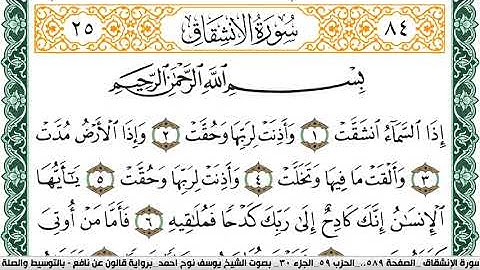 ٨٤ سُورَةُ الِانشِقَاقِ ٢٥
بِسْمِ اللَّهِ الرَّحْمَٰنِ الرَّحِيمِ
إِذَا السَّمَآءُ انشَقَّتْ ١ وَأَذِنَتْ لِرَبِّهَا وَحُقَّتْ ٢ وَإِذَا الْأَرْضُ مُدَّتْ
٣ وَأَلْقَتْ مَا فِيهَا وَتَخَلَّتْ ٤ وَأَذِنَتْ لِرَبِّهَا وَحُقَّتْ ٥ يَٰٓأَيُّهَا
الْإِنسَٰنُ إِنَّكَ كَادِحٌ إِلَىٰ رَبِّكَ كَدْحًا فَمُلَٰقِيهِ ٦ فَأَمَّا مَنْ أُوتِيَ
سورة الإنشقاق _ الصفحة ٥٨٩_ الحزب ٥٩_ الجزء ٣٠_ بصوت الشيخ يوسف نوح احمد _برواية قالون عن نافع - بالتوسيط والصلة